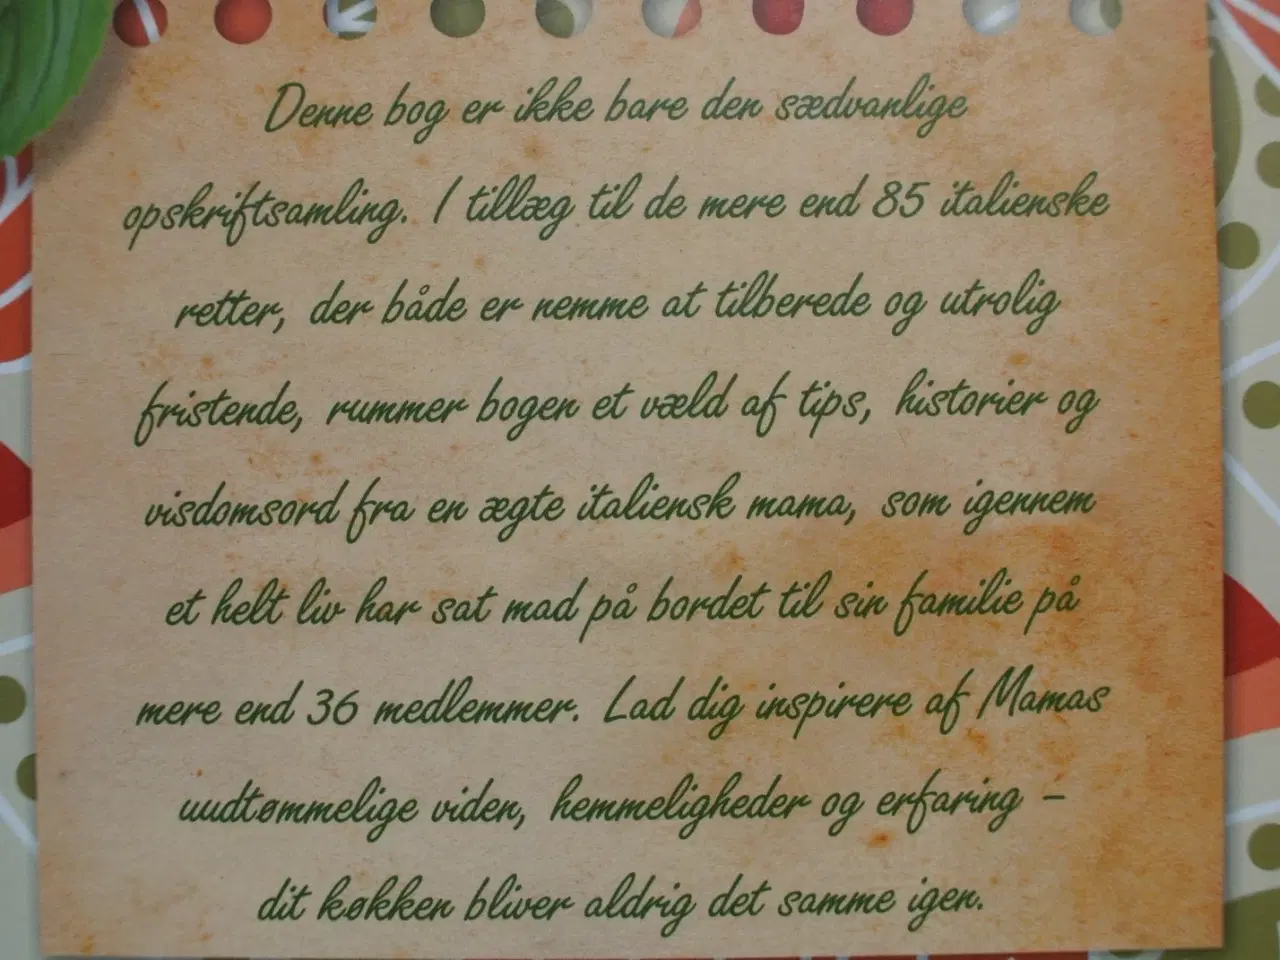 Denne bog er ikke bare den sædvanlige
opskriftsamling. I tillæg til de mere end 85 italienske
retter, der både er nemme at tilberede og utrolig
fristende, rummer bogen et væld af tips, historier og
visdomsord fra en ægte italiensk mama, som igennem
et helt liv har sat mad på bordet til sin familie på
mere end 36 medlemmer. Lad dig inspirere af Mamas
uudtømmelige viden, hemmeligheder og erfaring –
dit køkken bliver aldrig det samme igen.